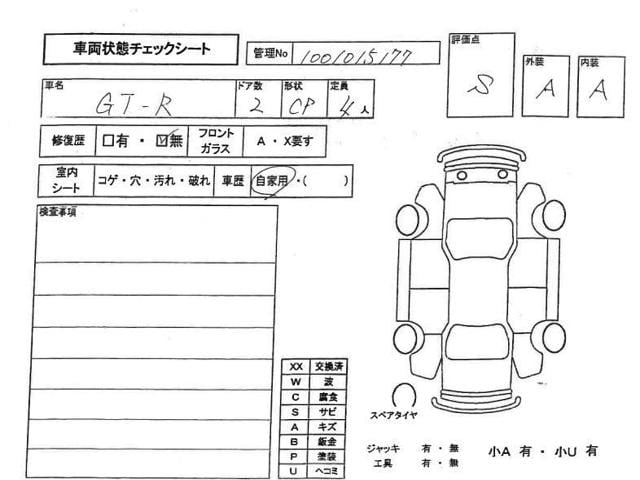 車両状態チェックシート 管理No 1001015177
評価点 S 外装 A 内装 A
車名 GT-R ドア数 2 形状 CP 定員 4人
修復歴 □有・☑無 フロントガラス A・X要す
室内シート コゲ・穴・汚れ・破れ 車歴 自家用・( )
検査事項
XX 交換済
W 波
C 腐食
S サビ
A キズ
B 鈑金
P 塗装
U ヘコミ
スペアタイヤ
ジャッキ 有・無
工具 有・無
小A 有・小U 有